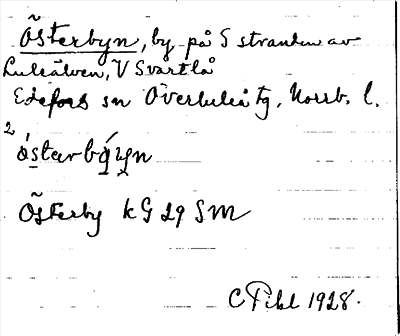 Österbyn, by på S stranden av
Luleälven, V Svartlå
Edefors sn Överluleå tg, Norrb. l.
2
österbýyn
Österby kG 29 SM
C Pihl 1928.